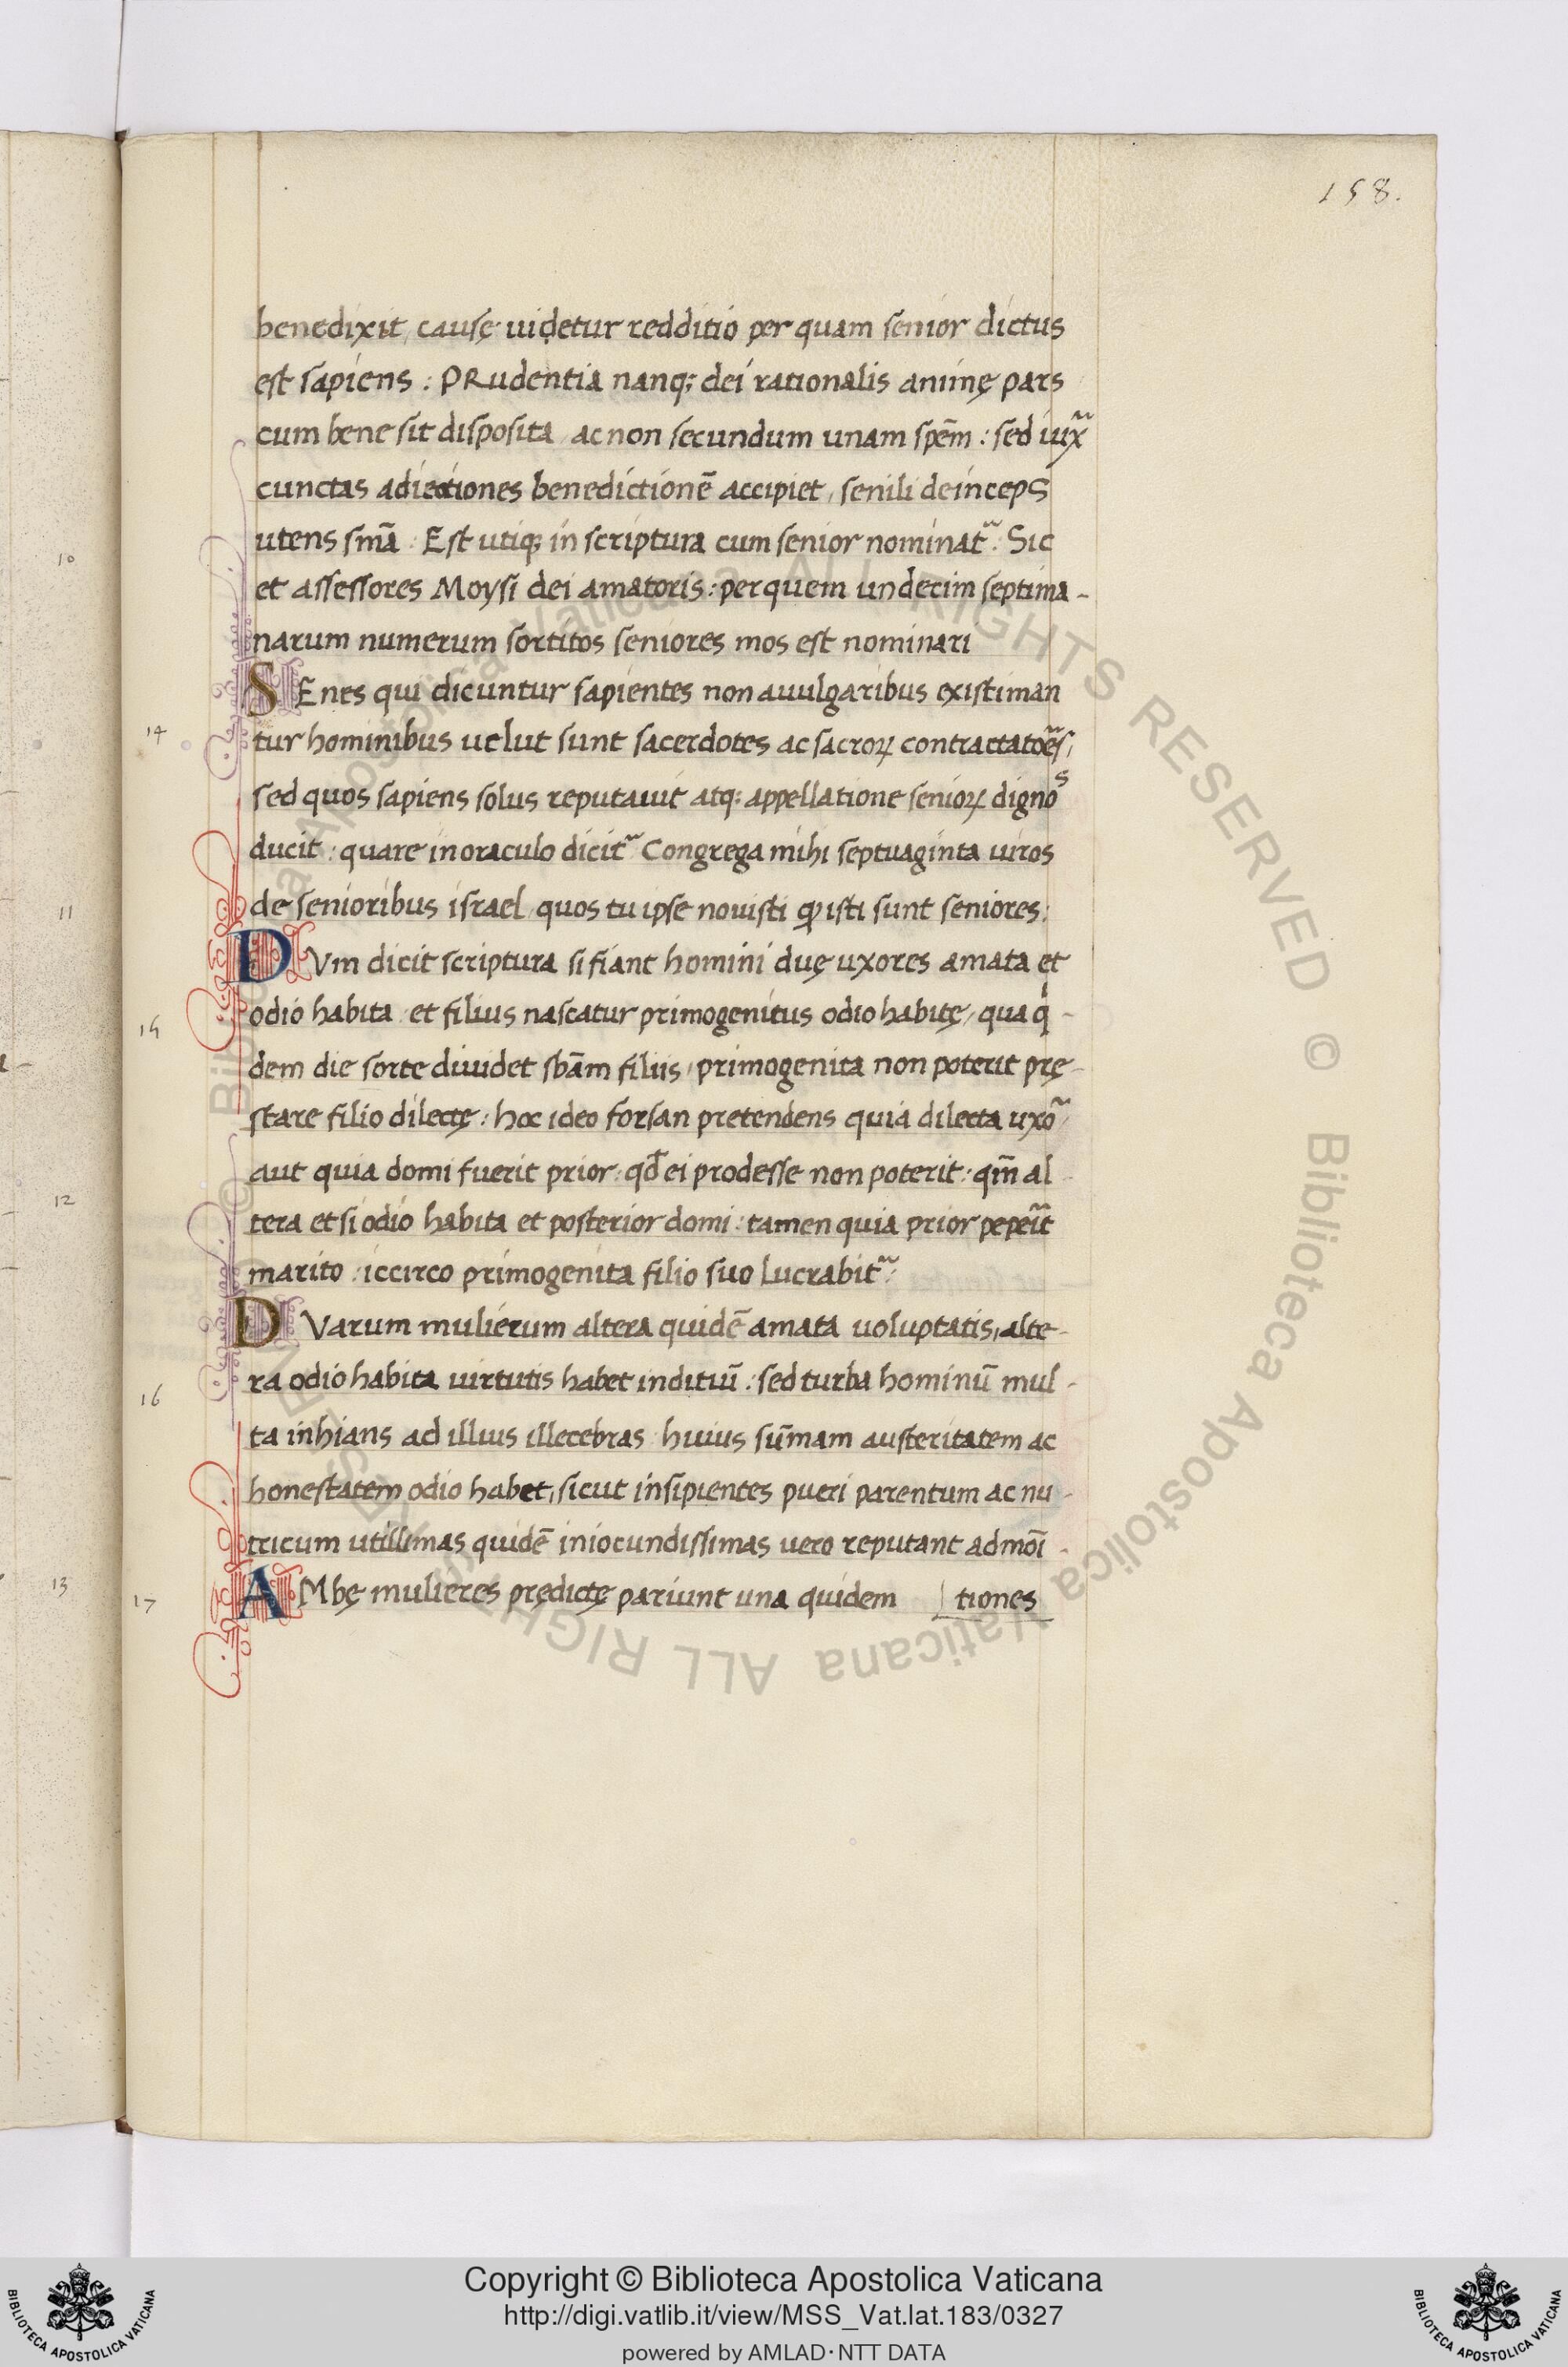 158.
benedixit, causę uidetur redditio per quam senior dictus
est sapiens : PRudentia nanq; dei rationalis animę pars
cum bene sit disposita, ac non secundum unam spēm : sed iux̃
cunctas adiectiones benedictionē accipiet, senili deinceps
utens sm̄a. Est utiq; in scriptura cum senior nominat̃. Sic
10
et assessores Moysi dei amatoris : per quem undecim septima-
narum numerum sortitos seniores mos est nominari
SEnes qui dicuntur sapientes non a uulgaribus existiman
14
tur hominibus uelut sunt sacerdotes ac sacroꝝ contractatoẽs,
sed quos sapiens solus reputauit atq; appellatione senioꝝ dignos
ducit : quare in oraculo dicit̃ Congrega mihi septuaginta uiros
de senioribus israel, quos tu ipse nouisti ꝙ isti sunt seniores :
11
DVm dicit scriptura si fiant homini duę uxores amata et
odio habita et filius nascatur primogenitus odio habitę, qua q̇-
15
dem die sorte diuidet sb̄am filiis, primogenita non poterit prę-
stare filio dilectę : hoc ideo forsan pretendens quia dilecta uxõ
aut quia domi fuerit prior : qđ ei prodesse non poterit : qm̄ al
12
tera et si odio habita et posterior domi : tamen quia prior pepeĩt
marito : iccirco primogenita filio suo lucrabit̃.
DVarum mulierum altera quidē amata uoluptatis, alte-
ra odio habita uirtutis habet inditiū : sed turba hominū mul-
16
ta inhians ad illius illecebras huius sūmam austeritatem ac
honestatem odio habet, sicut insipientes pueri parentum ac nu-
tricum utillimas quidē iniocundissimas uero reputant admoī-
13
17
AMbę mulieres prędictę pariunt una quidem tiones
© Biblioteca Apostolica Vaticana ALL RIGHTS RESERVED © Biblioteca Apostolica Vaticana ALL RIGHTS RESERVED
Copyright © Biblioteca Apostolica Vaticana
http://digi.vatlib.it/view/MSS_Vat.lat.183/0327
powered by AMLAD·NTT DATA
BIBLIOTECA APOSTOLICA VATICANA
BIBLIOTECA APOSTOLICA VATICANA